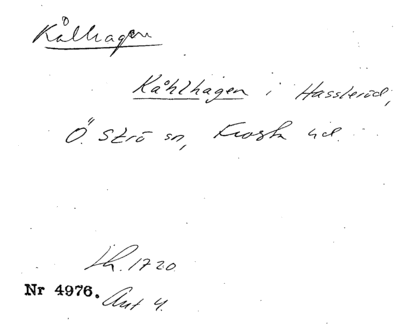 Kålhagen
Kåhlhagen i Hassleröd,
Ö. Strö sn, Frosta hd.
Lh. 1720
Nr 4976. Ant 4.